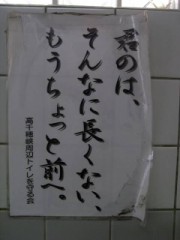 君のは、
そんなに長くない、
もうちょっと前へ。
高千穂峡周辺トイレを守る会